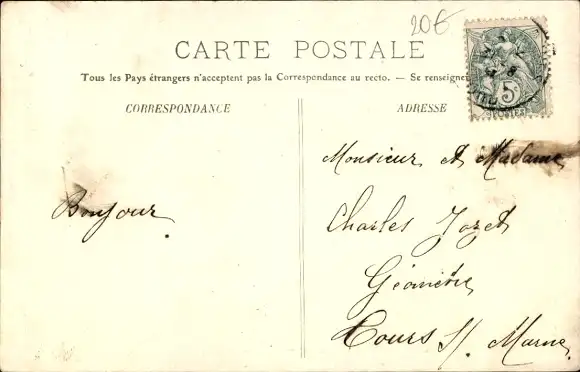 20€
CARTE POSTALE
Tous les Pays étrangers n'acceptent pas la Correspondance au recto. — Se renseigner
CORRESPONDANCE
ADRESSE
5
POSTES
Bonjour.
Monsieur et Madame
Charles Jozet
Géomètre
Cours s/ Marne.